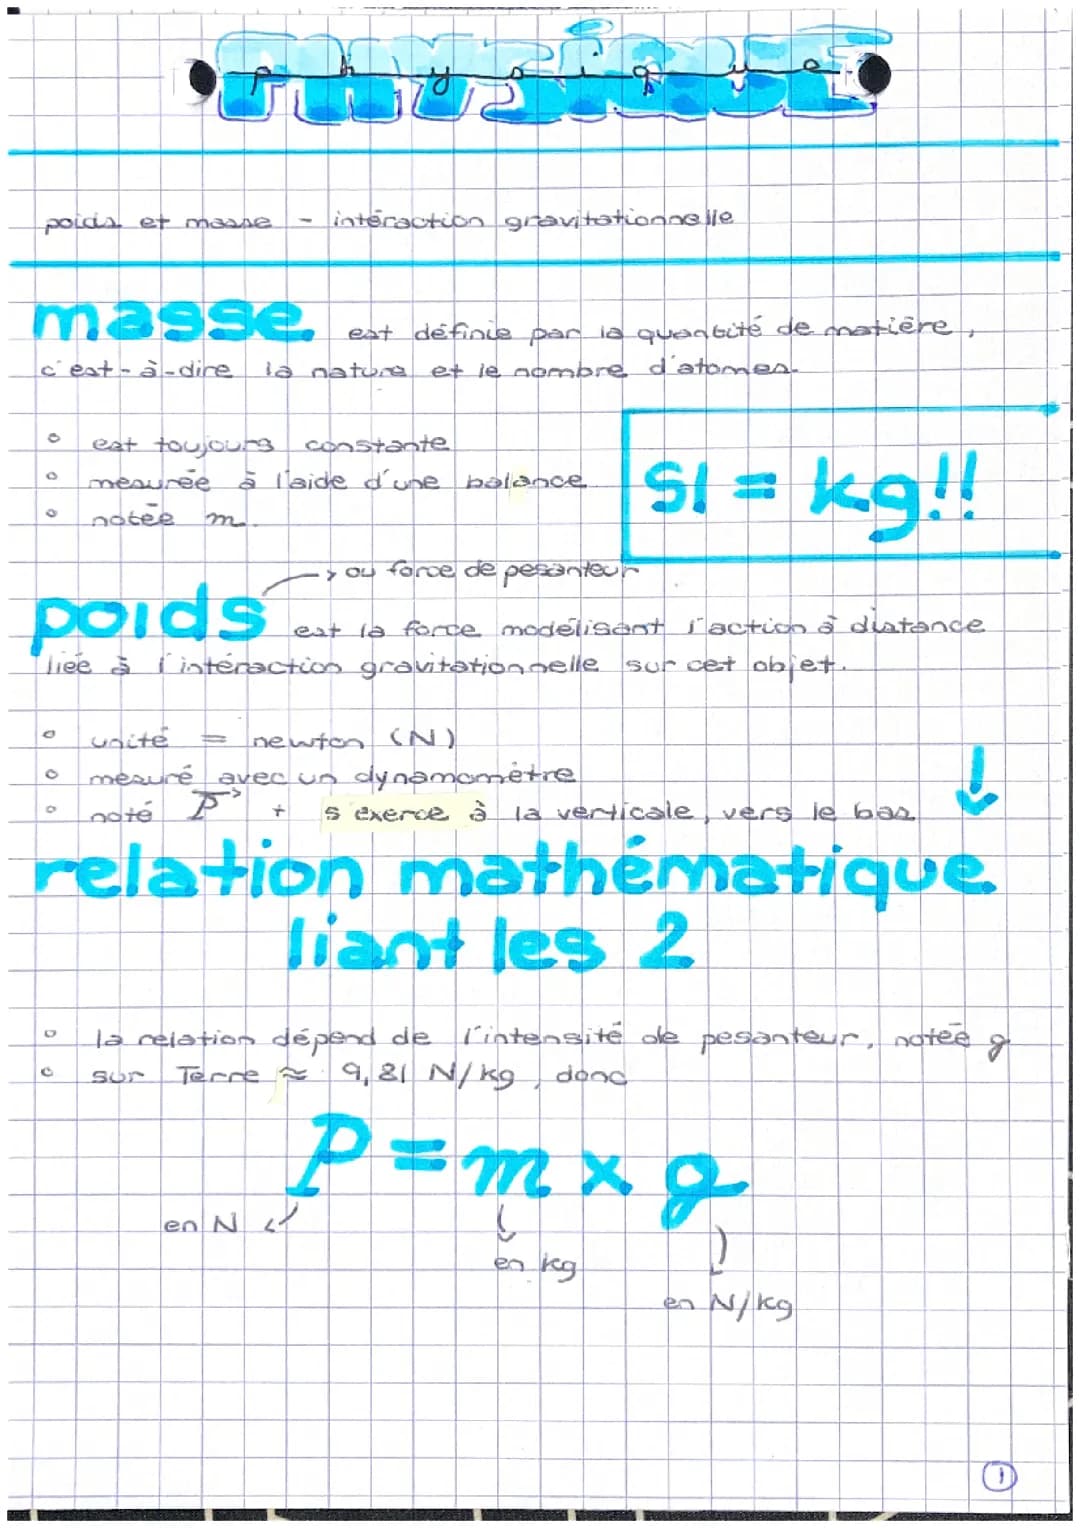 PHYSIQUE
physique
poids et masse - intéraction gravitationnelle
masse est définie par la quantité de matière,
c'est-à-dire la nature et le nombre d'atomes.
est toujours constante
mesurée à l'aide d'une balance
notée m.
SI = kg!!
→ ou force de pesanteur
poids est la force modélisant l'action à distance
liée à l'intéraction gravitationnelle sur cet objet.
unité = newton (N)
mesuré avec un dynamomètre
noté P→ + s'exerce à la verticale, vers le bas ↓
relation mathématique
liant les 2
la relation dépend de l'intensité de pesanteur, notée g
sur Terre ≈ 9,81 N/kg, donc
P = m x g
en N
en kg
en N/kg
1